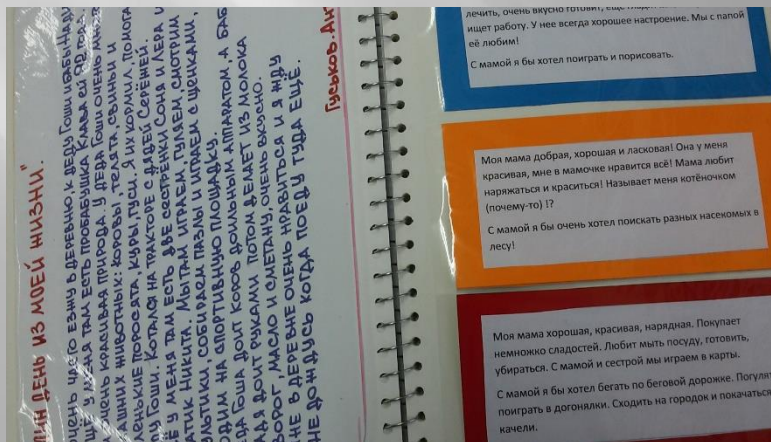 ин день из моей жизни".
очень часто езжу в деревню, к деду Гоши и бабы Нади
ещё у меня там есть пробабушка Клава ей 90
очень красивая природа. У деда Гоши очень
ашних животных: коровы, телята свиньи и
енькие поросята, куры, гуси. Я их кормил, помога
ду Гоши. Котался на тракторе с дядей Серёжей.
ё у меня там есть две сестрёнки Соня и Лера и
атик Никита. Мы там играем, гуляем, смотрим
ультики, собираем пазлы и играем с щенками,
одим на спортивную площадку.
еда Гоша доит коров доильным аппаратом, а баб
адя доит руками потом делает из молока
ворог, масло и сметану, очень вкусно.
не в деревне очень нравиться и я жду
не дождусь когда поеду туда ещё.
Гуськов. Ан
лечить, очень вкусно готовит,
ищет работу. У нее всегда хорошее настроение. Мы с папой
её любим!
С мамой я бы хотел поиграть и порисовать.
Моя мама добрая, хорошая и ласковая! Она у меня
красивая, мне в мамочке нравится всё! Мама любит
наряжаться и краситься! Называет меня котёночком
(почему-то) !?
С мамой я бы очень хотел поискать разных насекомых в
лесу!
Моя мама хорошая, красивая, нарядная. Покупает
немножко сладостей. Любит мыть посуду, готовить,
убираться. С мамой и сестрой мы играем в карты.
С мамой я бы хотел бегать по беговой дорожке. Погулят
поиграть в догонялки. Сходить на городок и покачаться
качели.